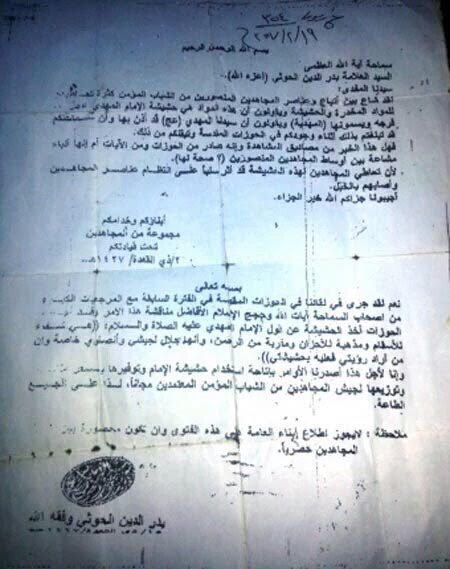 ٢٠٠٧/٢/١٩
بسم الله الرحمن الرحيم
سماحة آية الله العظمى
السيد العلامة بدر الدين الحوثي (أعزه الله)..
سيدنا المفدى:
لقد شاع بين أتباع وعناصر المجاهدين المنصورين من الشباب المؤمن كثرة
للمواد المخدرة والحشيشة ويقولون أن هذه المواد هي حشيشة الإمام المهدي
فرجه ويسمونها (المهدية) ويقولون أن سيدنا المهدي (عج) قد أذن بها وأن سماحتكم
قد تبلغتم بذلك أثناء وجودكم في الحوزات المقدسة وتيقنتم من ذلك.
فهل هذا الخبر من مصاديق المشاهدة وإنه صادر من الحوزات ومن الآيات أم إنها أنباء
مشاعة بين أوساط المجاهدين المنصورين (لا صحة لها).
لأن تعاطي المجاهدين لهذه الحشيشة قد أثر سلباً على انتظام عناصر المجاهدين
وأصابهم بالخبل.
أجيبونا جزاكم الله خير الجزاء.
أبناؤكم وخدامكم
مجموعة من المجاهدين
تحت قيادتكم
٢/ذي القعدة/١٤٢٧هـ
بسمه تعالى
نعم لقد جرى في لقائنا في الحوزات المقدسة في الفترة السابقة مع المرجعيات
من أصحاب السماحة آيات الله وحجج الإسلام الأفاضل مناقشة هذا الأمر
الحوزات أخذ الحشيشة عن قول الإمام المهدي عليه الصلاة والسلام: ((هي شفاء
للأسقام ومذهبة للأحزان ومقربة من الرحمن، وأنها حلال لجيشي وأنصاري خاصة وإن
من أراد رؤيتي فعليه بحشيشتي)).
وإنا لأجل هذا أصدرنا الأوامر بإتاحة استخدام حشيشة الإمام وتوفيرها
وتوزيعها لجيش المجاهدين من الشباب المؤمن المعتمدين مجاناً، لذا على الجميع
الطاعة.
ملاحظة : لايجوز اطلاع أبناء العامة على هذه الفتوى وان تكون محصورة بين
المجاهدين حصرياً.
بدر الدين الحوثي وفقه الله